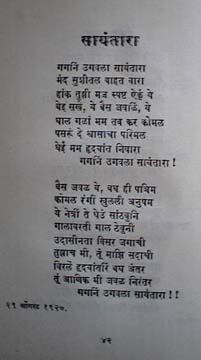 सायंतारा
गगनिं उगवला सायंतारा
मंद सुशीतल वाहत वारा
हांक तुझी मज स्पष्ट ऐकुं ये
येइ सखे, ये बैस जवळिं, ये
घाल गळां मम तव कर कोमल
पसरूं दे श्वासाचा परिमल
येई मम हृदयांत निवारा
गगनिं उगवला सायंतारा !
बैस जवळ ये, बघ ही पश्चिम
कोमल रंगीं खुलली अनुपम
ये नेत्रीं ते घेउं सांठवुनि
गालावरती गाल ठेवुनी
उदासीनता विसर जगाची
तुझाच मी, तूं माझि सदाची
विरलें हृदयांतरिं बघ अंतर
तूं आणिक मी जवळ निरंतर
गगनिं उगवला सायंतारा !!
२९ ऑगस्ट १९२०.
४२